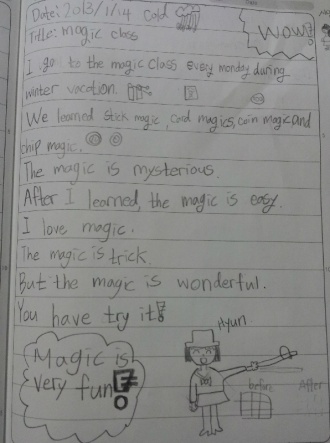 Date: 2013/1/14 cold
WOW!
Title: magic class
I go to the magic class every monday during
winter vacation.
We learned stick magic, card magics, coin magic and
chip magic.
The magic is mysterious.
After I learned, the magic is easy.
I love magic.
The magic is trick.
But the magic is wonderful.
You have try it!
Hyun
Magic is
very fun!
before After